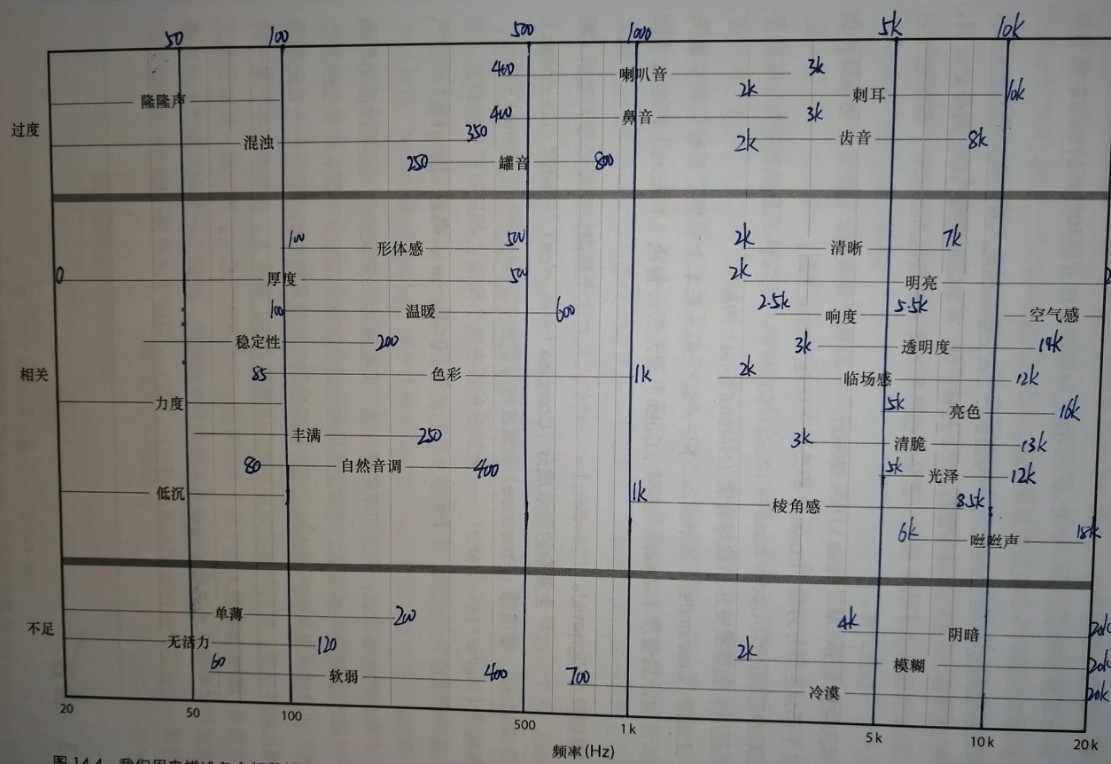 50 100 500 1000 5k 10k
400 喇叭音 3k
隆隆声 2k 刺耳 10k
过度 400 鼻音 3k
混浊 350 2k 齿音 8k
250 罐音 800
100 形体感 500 2k 清晰 7k
0 厚度 500 2k 明亮
100 温暖 600 2.5k 响度 5.5k 空气感
稳定性 200 3k 透明度 14k
相关 85 色彩 1k 2k 临场感 12k
力度 5k 亮色 16k
丰满 250 3k 清脆 13k
80 自然音调 400 5k 光泽 12k
低沉 1k 棱角感 8.5k
6k 咝咝声 18k
单薄 200 4k 阴暗 20k
不足 无活力 120 2k 模糊 20k
60 软弱 400 700 冷漠 20k
20 50 100 500 1k 5k 10k 20k
频率(Hz)
图 14.4